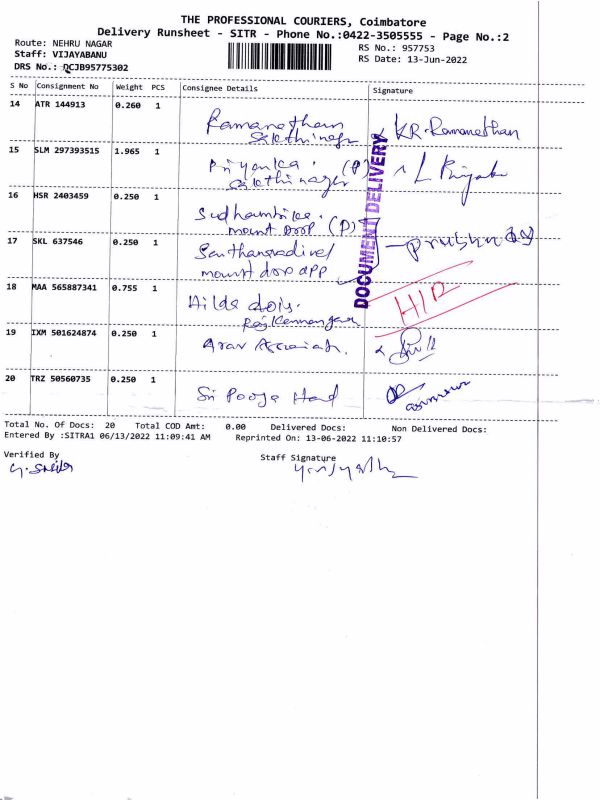 THE PROFESSIONAL COURIERS, Coimbatore
Delivery Runsheet - SITR - Phone No.:0422-3505555 - Page No.:2
Route: NEHRU NAGAR
RS No.: 957753
Staff: VIJAYABANU
RS Date: 13-Jun-2022
DRS No.: DCJB95775302
S No Consignment No Weight PCS Consignee Details Signature
14 ATR 144913 0.260 1 Ramanathan KR.Ramanathan
15 SLM 297393515 1.965 1 Priyanka (P) L Priyanka
16 HSR 2403459 0.250 1
mount (P)
17 SKL 637546 0.250 1
mount
18 MAA 565887341 0.755 1 Hilda
19 IXM 501624874 0.250 1 Arav
20 TRZ 50560735 0.250 1 Sri Pooja
DOCUMENT DELIVERY
Total No. Of Docs: 20 Total COD Amt: 0.00 Delivered Docs: Non Delivered Docs:
Entered By :SITRA1 06/13/2022 11:09:41 AM Reprinted On: 13-06-2022 11:10:57
Verified By
Staff Signature